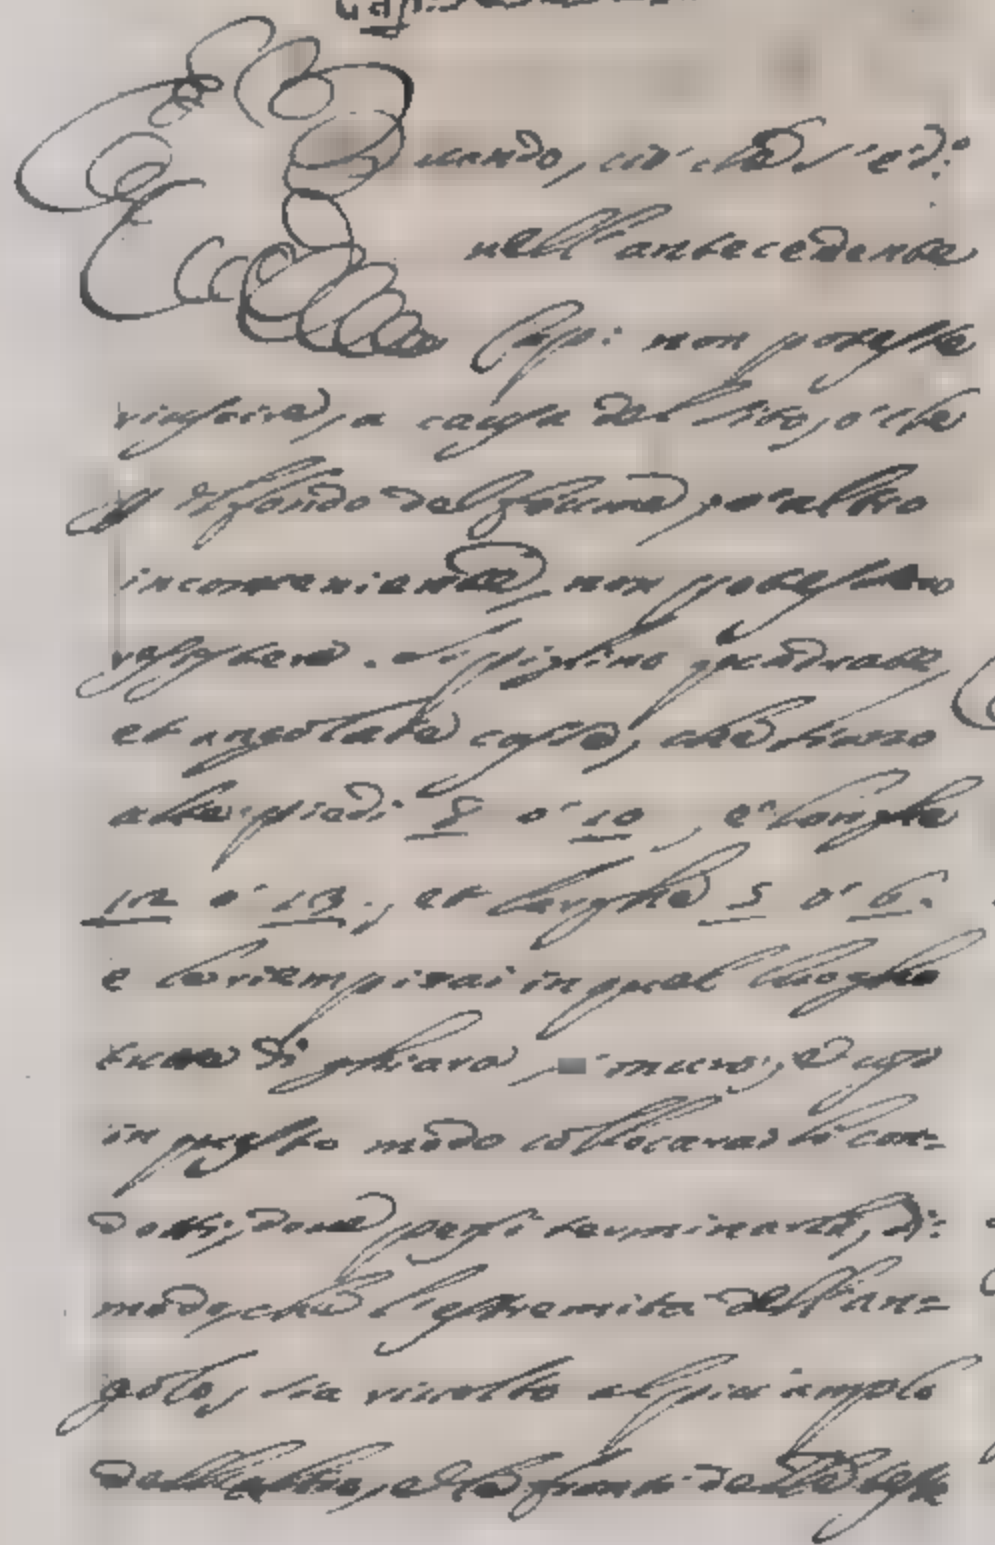 Quando, ciò che s'è d.º
nell'antecedente
Cap: non potesse
riuscire, a causa del sito, ò che
il fondo del fiume, per altro
inconveniente, non potessero
si piglino quadrate
et angolate casse, che siano
alte piedi 8 ò 10, e longhe
12 ò 13., et larghe 5 ò 6.
e le riempirai in quel luogho
di ghiara, muro, e così
in questo modo collocarai li con=
dotti, dove pensi terminarla, di:
modo, che l'estremita dell'an=
golo, sia rivolto al più amplo
dell'altro, e la fronte delle teste